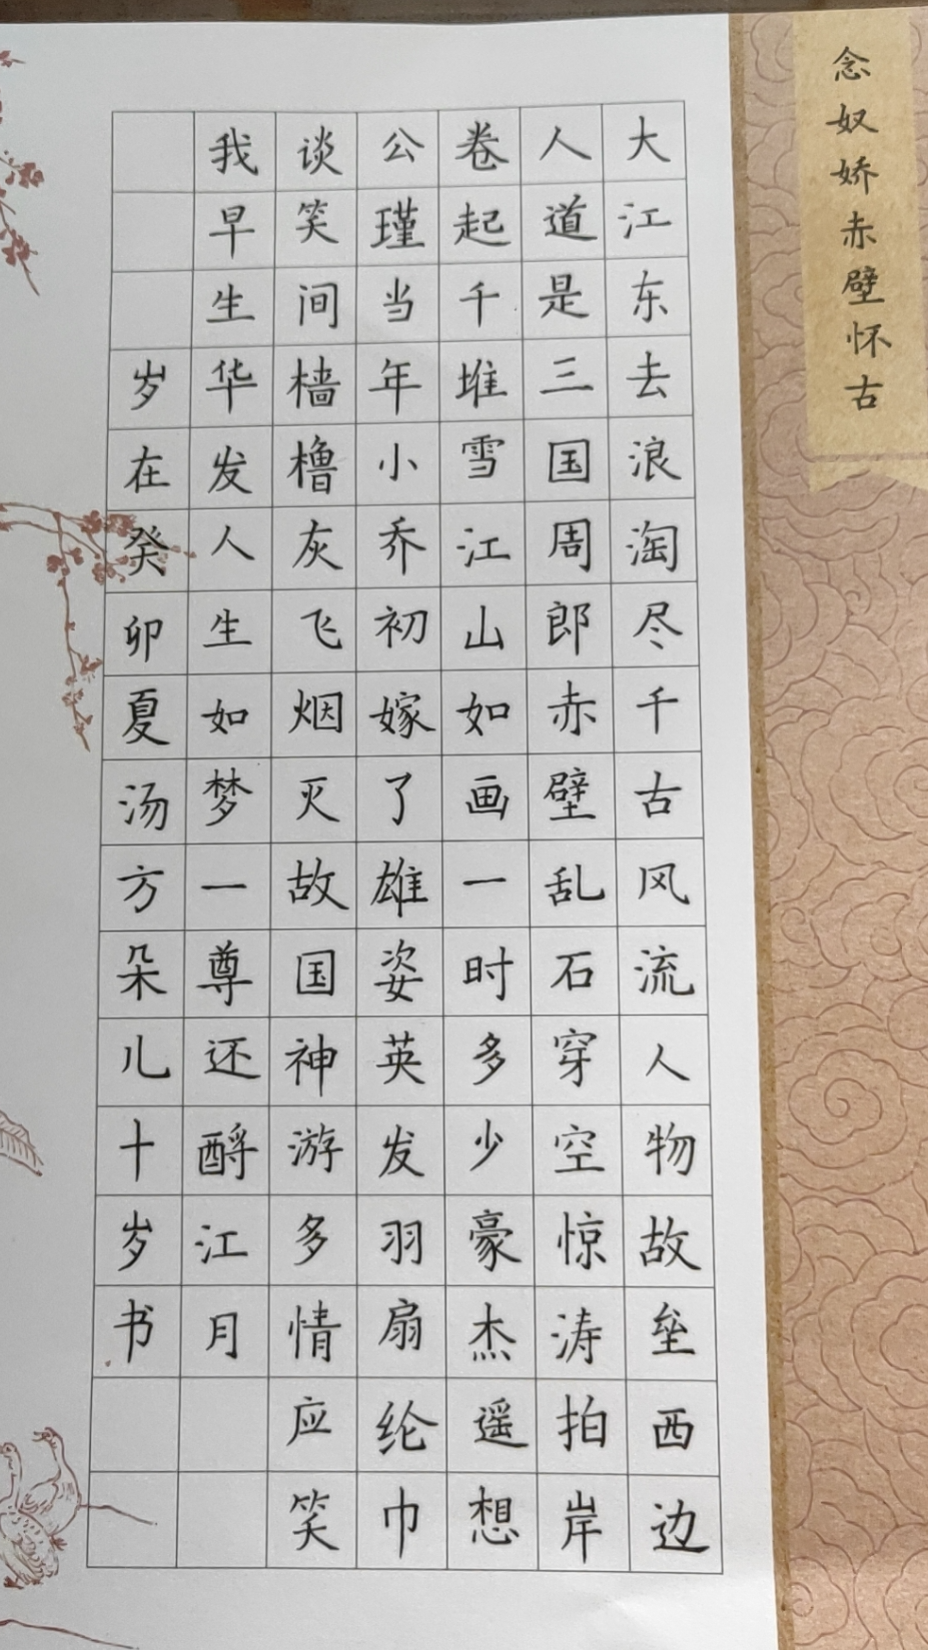 念奴娇赤壁怀古
大江东去浪淘尽千古风流人物故垒西边
人道是三国周郎赤壁乱石穿空惊涛拍岸
卷起千堆雪江山如画一时多少豪杰遥想
公瑾当年小乔初嫁了雄姿英发羽扇纶巾
谈笑间樯橹灰飞烟灭故国神游多情应笑
我早生华发人生如梦一尊还酹江月
岁在癸卯夏汤方朵儿十岁书